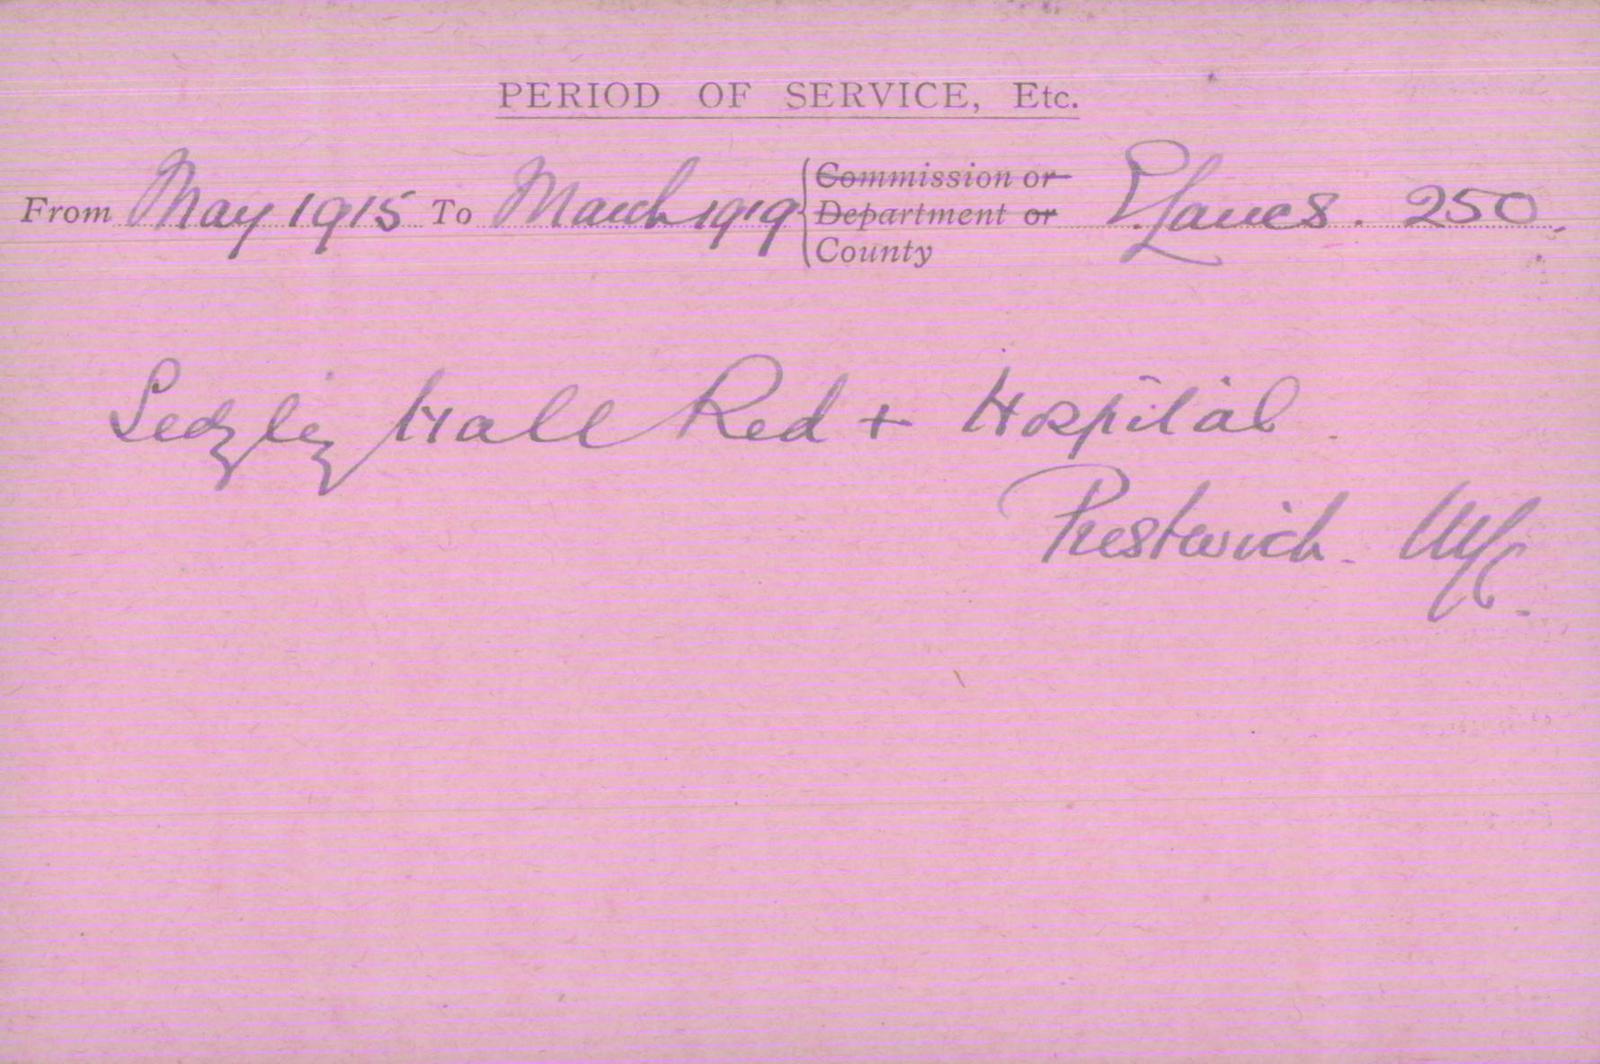 PERIOD OF SERVICE, Etc.
From May 1915 To March 1919 Commission or
Department or
County E. Lancs. 250.
Sedgley Hall Red + Hospital.
Prestwich. M/c.